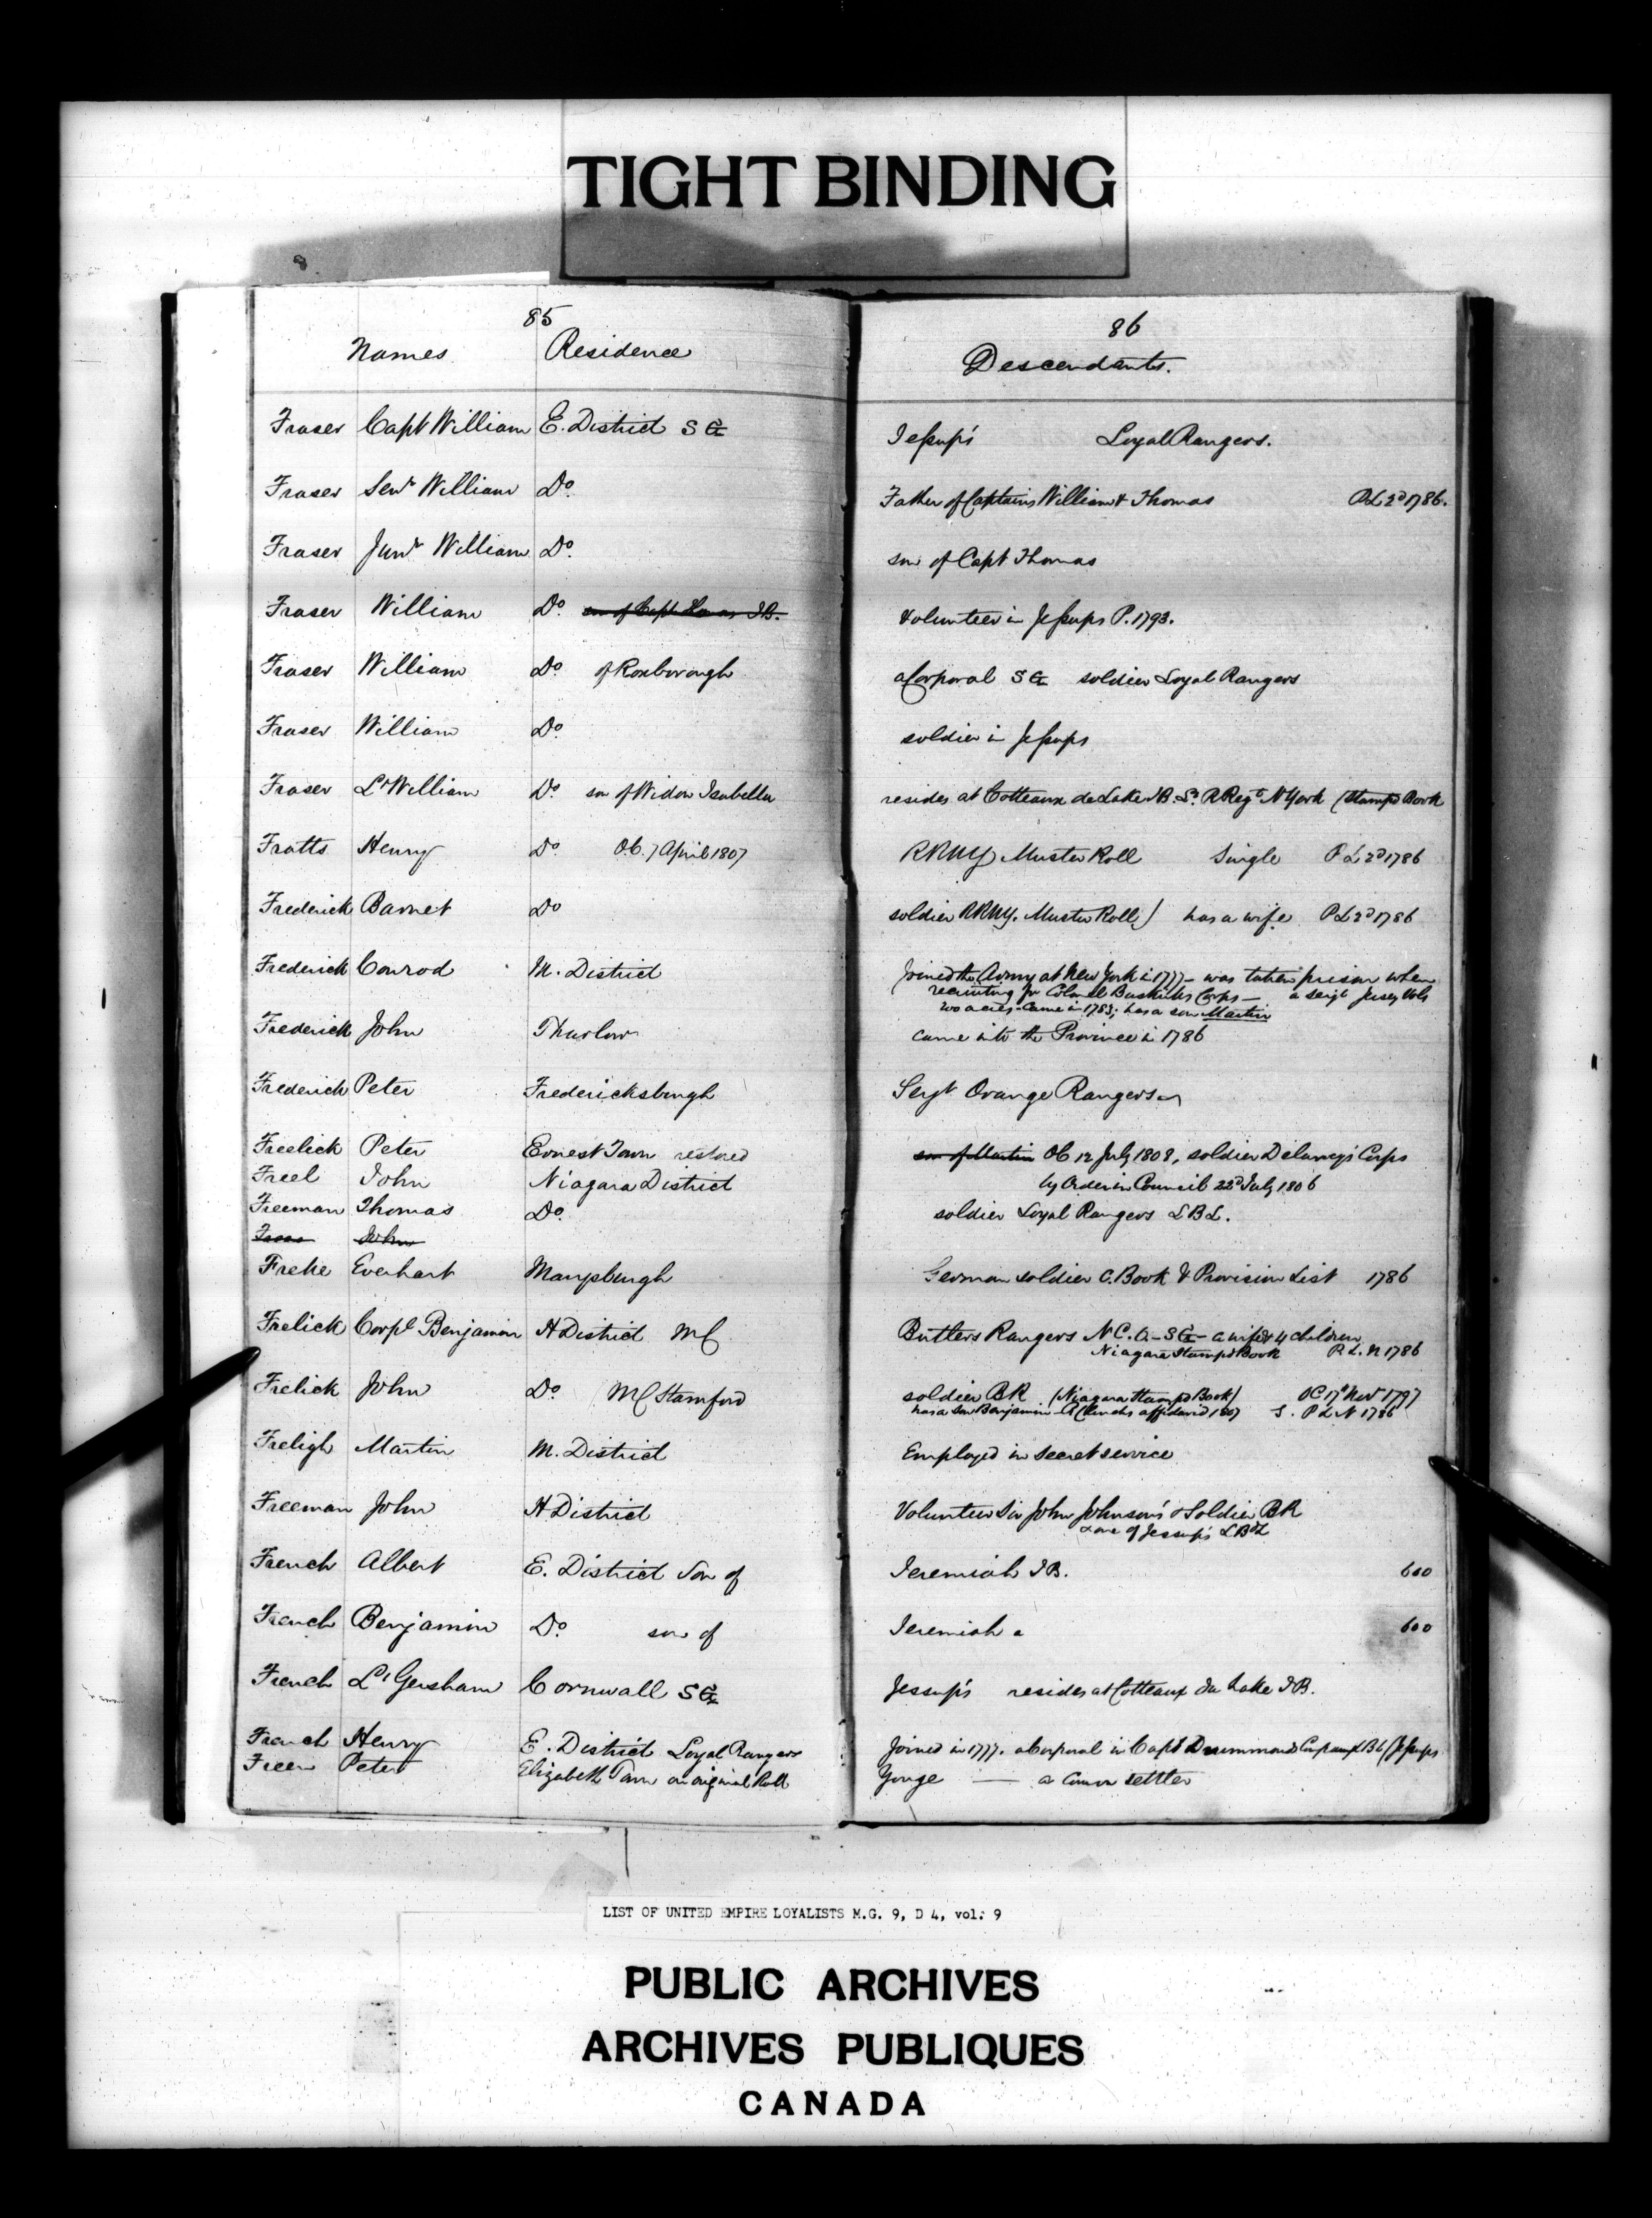 TIGHT BINDING
85
Names Residence
Fraser Capt William E. District S G
Fraser Senr William Do
Fraser Junr William Do
Fraser William Do son of Capt Thomas I B.
Fraser William Do of Roxborough
Fraser William Do
Fraser Lt William Do son of Widow Isabella
Fratts Henry Do Ob. 7 April 1807
Frederick Barnet Do
Frederick Conrod M. District
Frederick John Thurlow
Frederick Peter Fredericksburgh
Freelick Peter Ernest Town restored
Freel John Niagara District
Freeman Thomas Do
John
Freke Everhart Marysburgh
Frelick Corpl Benjamin H District M C
Frelick John Do M C Stamford
Freligh Martin M. District
Freeman John H District
French Albert E. District Son of
French Benjamin Do son of
French Lt Gersham Cornwall S G
French Henry E. District Loyal Rangers
Freer Peter Elizabeth Town on original Roll
86
Descendants.
Jessup's Loyal Rangers.
Father of Captains William & Thomas P L 2d 1786.
son of Capt Thomas
Volunteer in Jessups P. 1793.
a Corporal S G soldier Loyal Rangers
soldier in Jessups
resides at Cotteaux de Lake I B. Lt R Regt N York (Stamped Book
RRNY Muster Roll Single P L 2d 1786
soldier RRNY. Muster Roll) has a wife P L 2d 1786
Joined the Army at New York in 1777 - was taken prison when
recruiting for Colonel Buskirks Corps - a Sergt Jersey Vols
200 acres - Came in 1783; has a son Martin
came into the Province in 1786
Sergt Orange Rangers
son of Martin Ob 12 July 1808, soldier Delancy's Corps
by Order in Council 22d July 1806
soldier Loyal Rangers L B L.
German soldier C. Book & Provision List 1786
Butlers Rangers N C. O - S G - a wife & 4 children
Niagara Stamped Book P. L. N 1786
soldier BR (Niagara Stamped Book) OC 17th Novr 1797
has a son Benjamin affidavid 1807 S. P L N 1786
Employed in secret service
Volunteer Sir John Johnson's & Soldier BR
& one of Jessup's L B L
Jeremiah I B. 600
Jeremiah a 600
Jessup's resides at Cotteaux du Lake I B.
Joined in 1777. a Corporal in Capt Drummonds Jessups
Yonge — a Comon settler
LIST OF UNITED EMPIRE LOYALISTS M.G. 9, D 4, vol: 9
PUBLIC ARCHIVES
ARCHIVES PUBLIQUES
CANADA